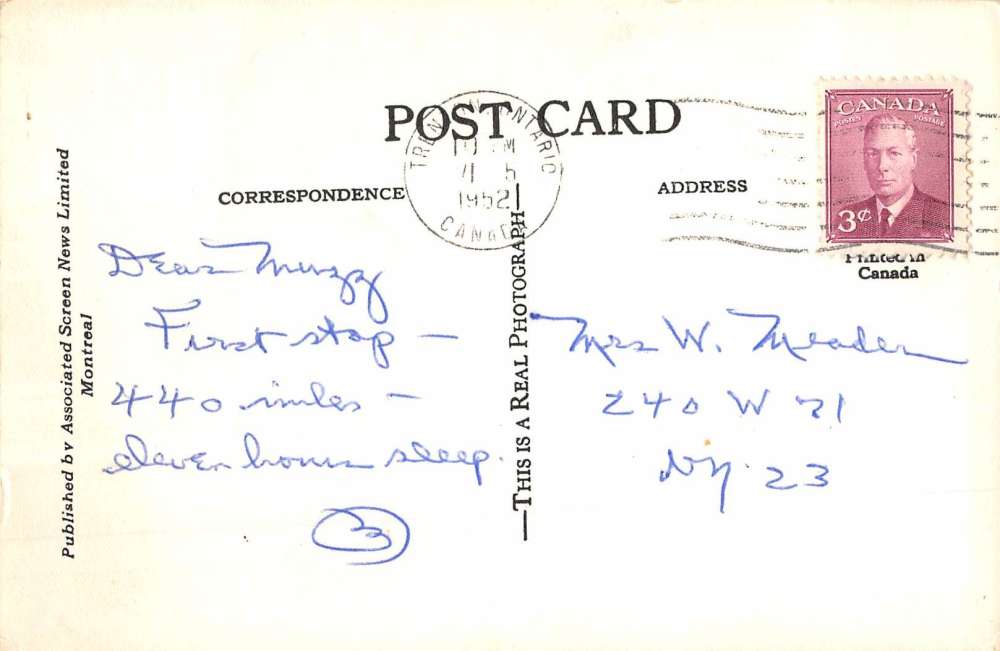 POST CARD
CORRESPONDENCE
ADDRESS
TRENTON ONTARIO
PM
1952
CANADA
CANADA
POSTES POSTAGE
3¢
Printed in
Canada
Published by Associated Screen News Limited
Montreal
—THIS IS A REAL PHOTOGRAPH—
Dear Muzzy
First stop —
440 miles —
eleven hours sleep.
Mrs W. Meader
240 W 71
NY 23